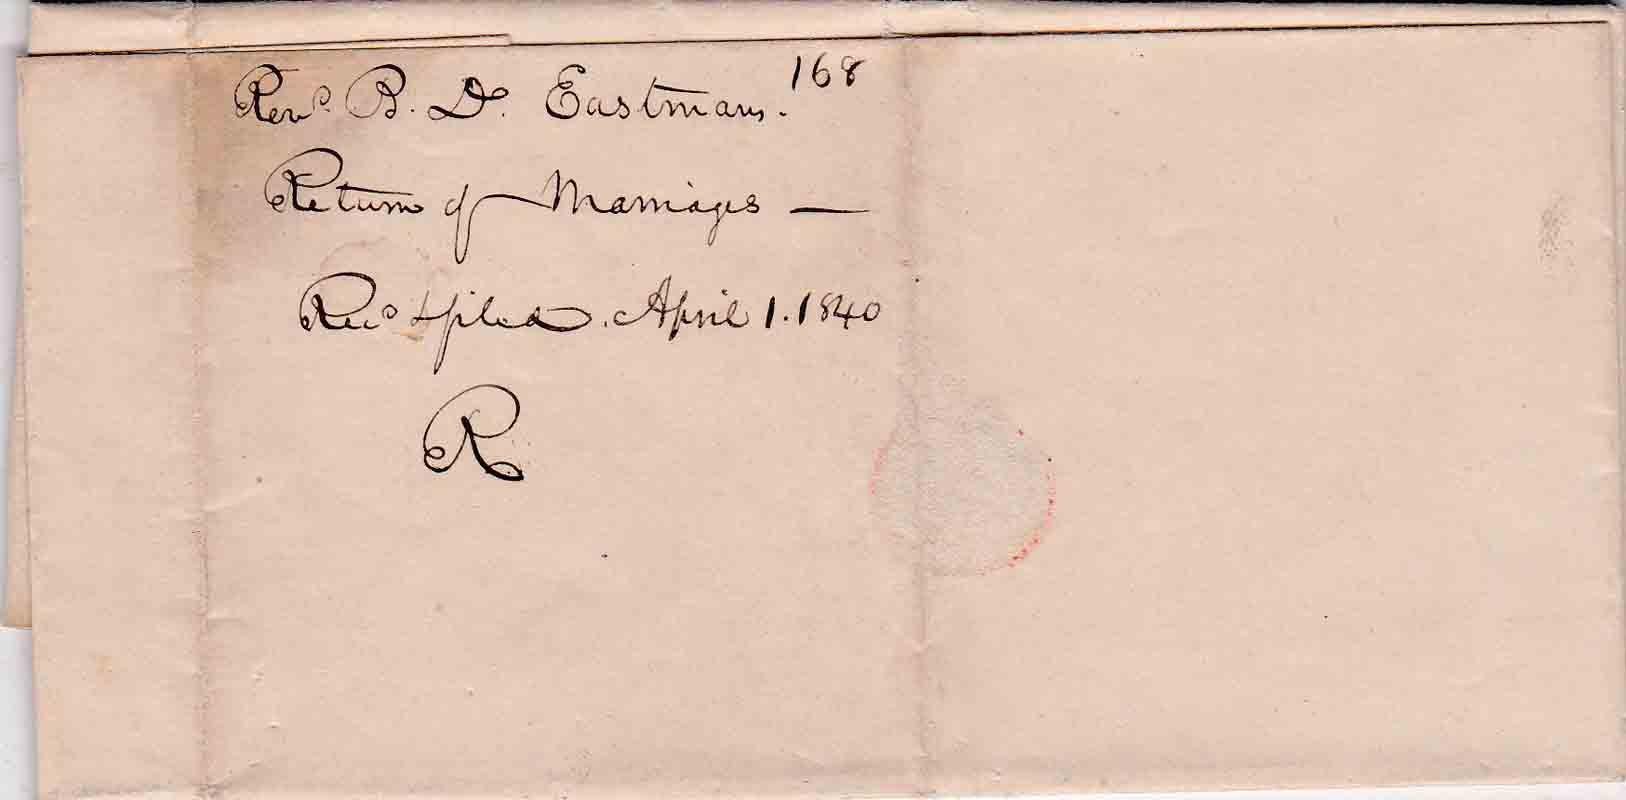 Revd. B. D. Eastman. 168
Return of Marriages —
Recd & filed. April 1. 1840
R